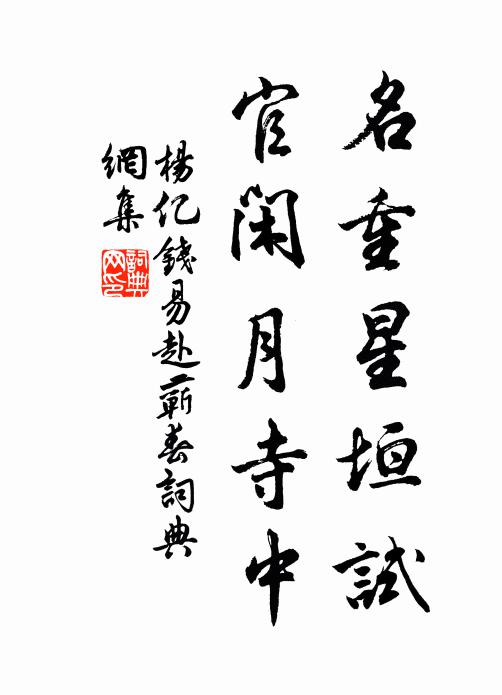 名重星垣試
官閑月寺中
楊億錢易赴蘄春詞典
網集
詞典
网印